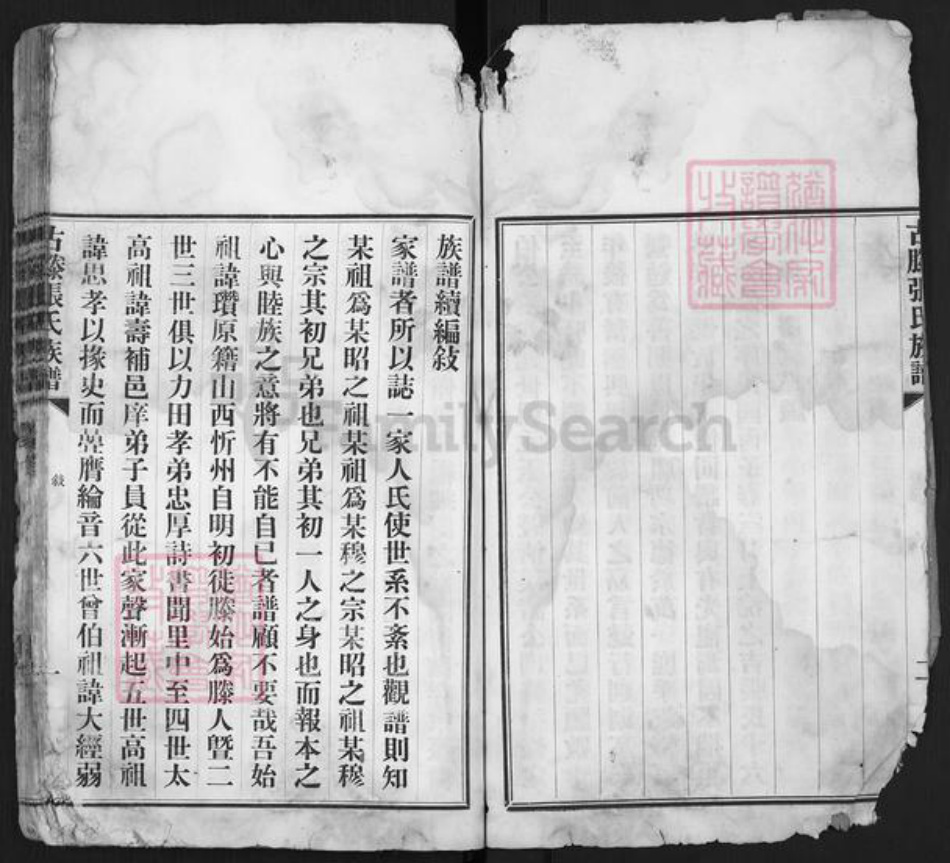 族譜續編敍
家譜者所以誌一家人氏使世系不紊也觀譜則知
某祖爲某昭之祖某祖爲某穆之宗某昭之祖某穆
之宗其初兄弟也兄弟其初一人之身也而報本之
心與睦族之意將有不能自已者譜顧不要哉吾始
祖諱瓚原籍山西忻州自明初徙滕始爲滕人曁二
世三世俱以力田孝弟忠厚詩書聞里中至四世太
高祖諱壽補邑庠弟子員從此家聲漸起五世高祖
諱思孝以掾史而膺綸音六世曾伯祖諱大經弱
古滕張氏族譜
敍
一
古滕張氏族譜
二
FamilySearch